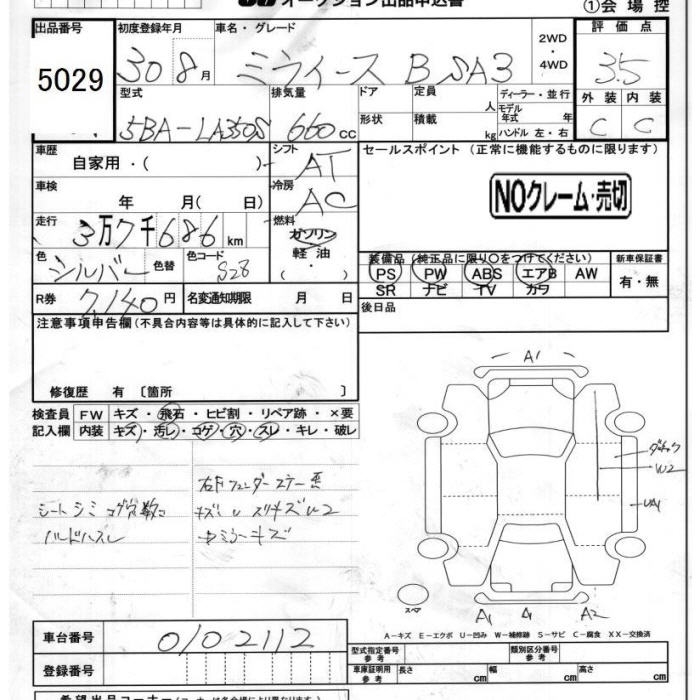 オークション出品申込書
①会場控
出品番号 初度登録年月 車名・グレード 2WD ・4WD 評価点
5029 30 8月 ミライース B SA3 3.5
型式 排気量 ドア 定員 人 ディーラー・並行 外装 内装
5BA-LA350S 660cc 形状 積載 kg モデル年式 年 ハンドル 左・右 C C
車歴 自家用・( ) シフト AT セールスポイント (正常に機能するものに限ります)
車検 年 月( 日) 冷房 AC NOクレーム・売切
走行 3万7千686km 燃料 ガソリン・軽油・( )
色 シルバー 色替 色コード S28
装備品(純正品に限り○をつけてください) 新車保証書
PS PW ABS エアB AW 有・無
SR ナビ TV カワ
R券 7,140円 名変通知期限 月 日 後日品
注意事項申告欄(不具合内容等は具体的に記入して下さい)
修復歴 有〔箇所 〕
検査員記入欄 FW キズ・飛石・ヒビ割・リペア跡・×要
内装 キズ・汚レ・コゲ・穴・スレ・キレ・破レ
シートシミコゲ穴数コ
右Fフェンダーステー歪
A1
W2
UA1
A1 A1 A2
スペア
A-キズ E-エクボ U-凹み W-補修跡 S-サビ C-腐食 XX-交換済
車台番号 0102112
登録番号
型式指定番号 参考 類別区分番号 参考
車庫証明用 参考 長さ cm 幅 cm 高さ cm